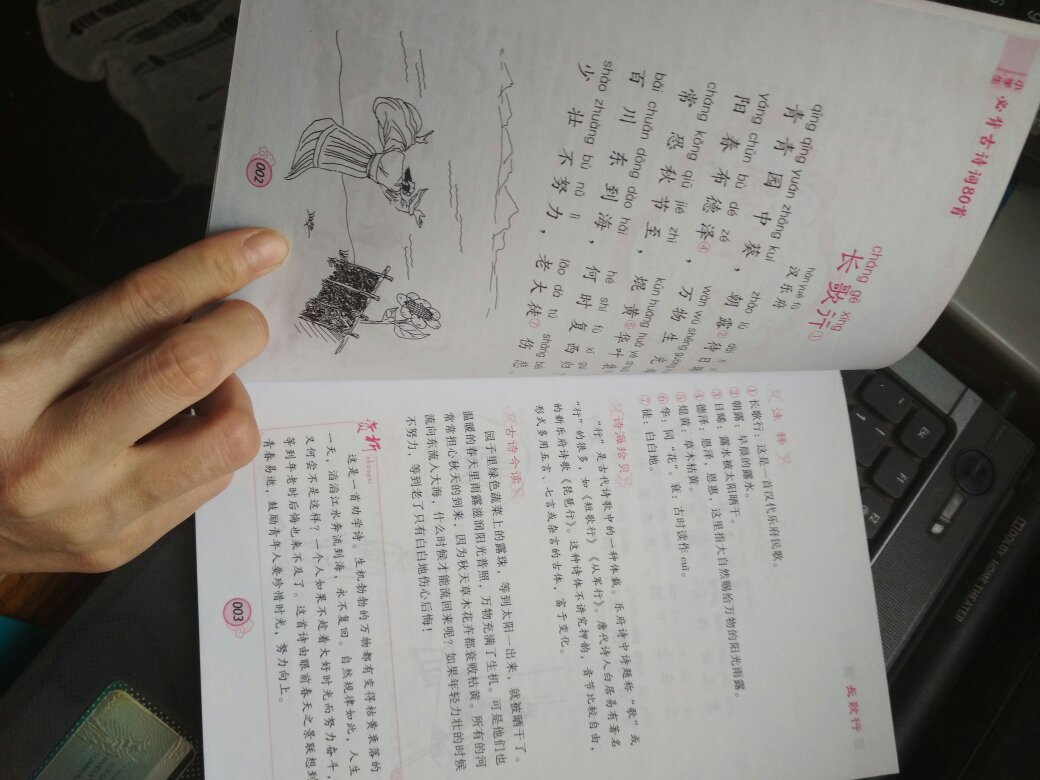 小学生
必背古诗词80首
cháng gē xíng
长歌行①
hàn yuè fǔ
汉乐府
qīng qīng yuán zhōng kuí zhāo lù
青青园中葵，朝露②待日
yáng chūn bù dé zé wàn wù shēng guāng
阳春布德泽④，万物生光
cháng kǒng qiū jié zhì kūn huáng huā yè
常恐秋节至，焜黄⑤华叶衰
bǎi chuān dōng dào hǎi hé shí fù xī
百川东到海，何时复西归
shào zhuàng bù nǔ lì lǎo dà tú shāng bēi
少壮不努力，老大徒⑦伤悲。
002
长歌行
注释
①长歌行：这是一首汉代乐府民歌。
②朝露：早晨的露水。
③日晞：露水被太阳晒干。
④德泽：恩泽，恩惠，这里指大自然赐给万物的阳光雨露。
⑤焜黄：草木枯黄。
⑥华：同“花”。衰：古时读作cuī。
⑦徒：白白地。
诗海拾贝
“行”是古代诗歌中的一种体裁。乐府诗中诗题称“歌”或
“行”的很多，如《短歌行》《从军行》。唐代诗人白居易有著名
的新乐府诗歌《琵琶行》。这种诗体不讲究押韵，音节比较自由，
形式多用五言、七言或杂言的古体，富于变化。
古诗今读
园子里绿色蔬菜上的露珠，等到太阳一出来，就被晒干了。
温暖的春天里雨露滋润阳光普照，万物充满了生机。可是他们也
常常担心秋天的到来，因为秋天草木花卉都衰败枯黄。所有的河
流向东流入大海，什么时候才能流回来呢？如果年轻力壮的时候
不努力，等到老了只有白白地伤心后悔！
赏析 shangxi
这是一首劝学诗。生机勃勃的万物都有变得枯黄衰落的
一天，滔滔江水奔流到海，永不复回。自然规律如此，人生
又何尝不是这样？一个人如果不趁着大好时光而努力奋斗，
等到年老时后悔也来不及了。这首诗由眼前春天之景联想到
青春易逝，鼓励青年人要珍惜时光，努力向上。
003
DOLBY HOME THEATER